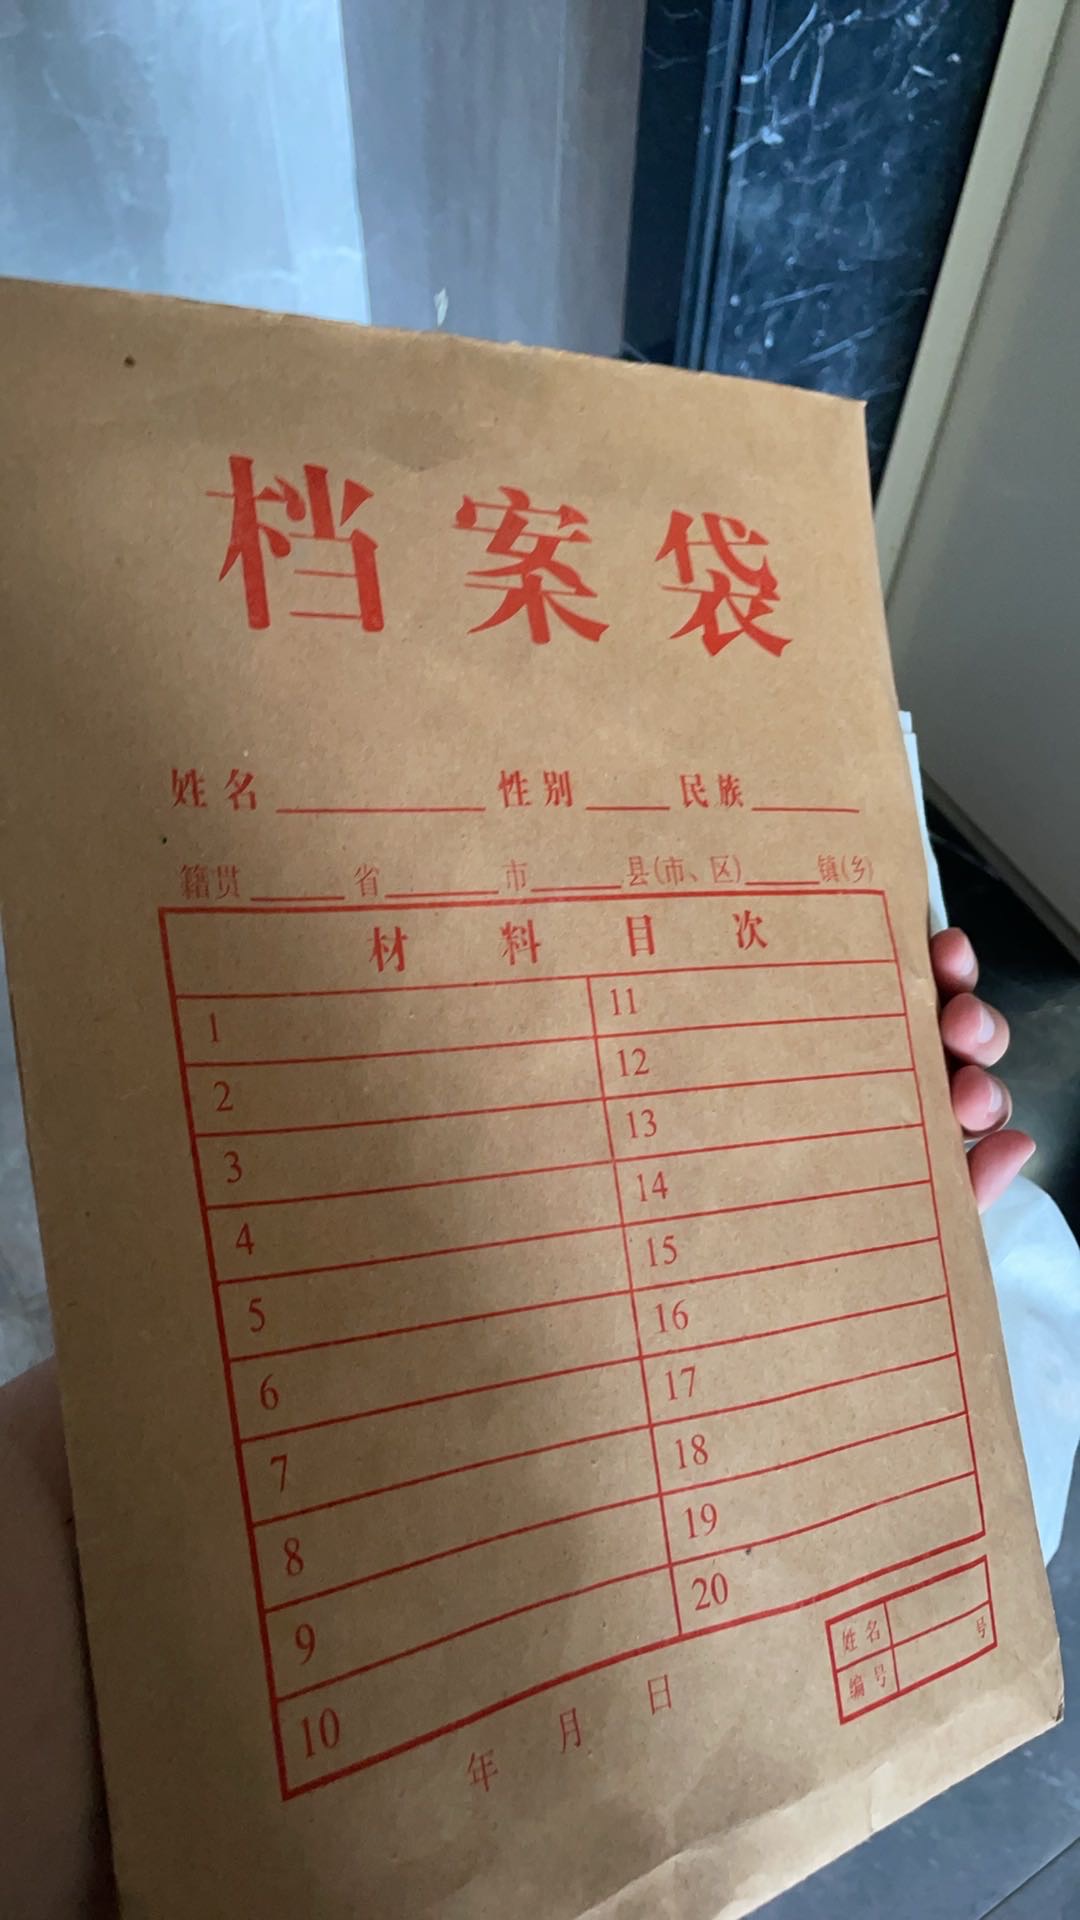 档案袋
姓名 性别 民族
籍贯 省 市 县(市、区) 镇(乡)
材料目次
1 11
2 12
3 13
4 14
5 15
6 16
7 17
8 18
9 19
10 20
年 月 日
姓名
编号 号